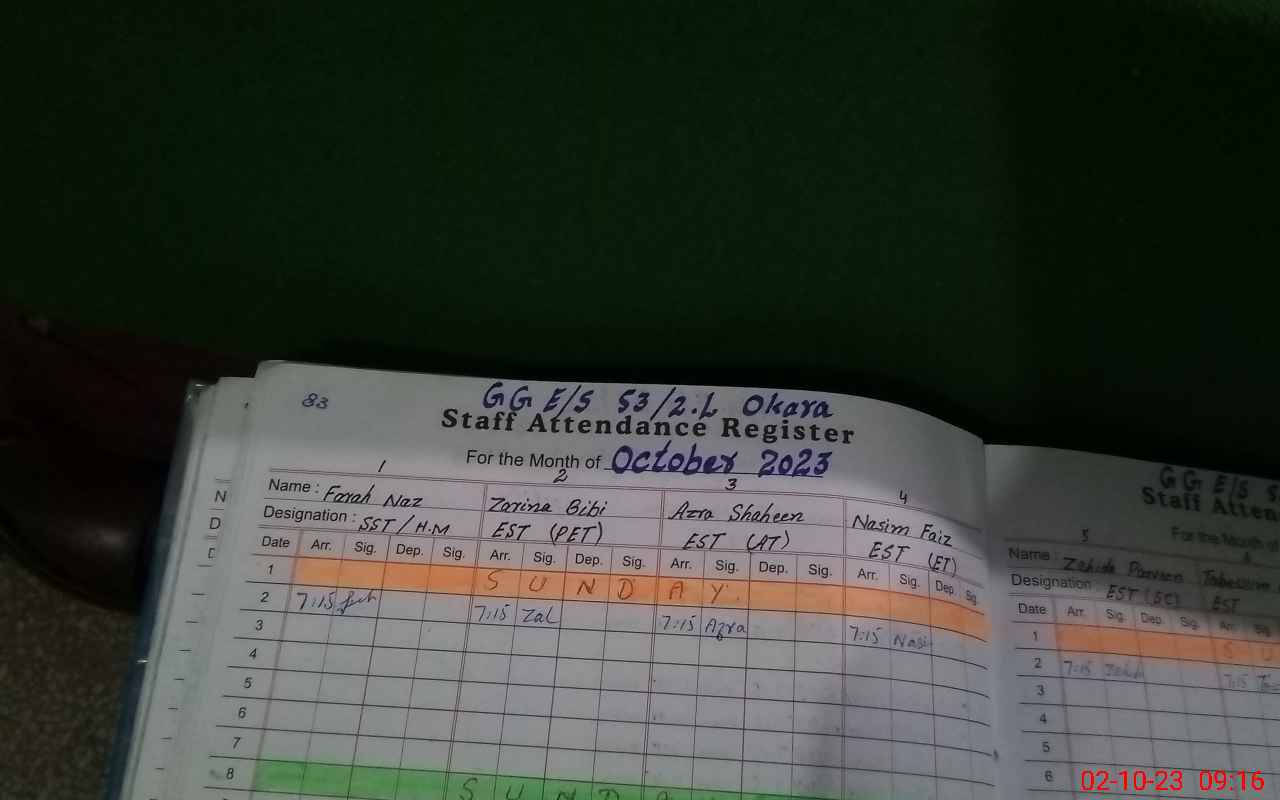 83
GG E/S 53/2.L Okara
Staff Attendance Register
For the Month of October 2023
1 2 3 4
Name : Farah Naz Zarina Bibi Azra Shaheen Nasim Faiz
Designation : SST/H.M EST (PET) EST (AT) EST (ET)
Date Arr. Sig. Dep. Sig. Arr. Sig. Dep. Sig. Arr. Sig. Dep. Sig. Arr. Sig. Dep. Sig.
1 S U N D A Y
2 7:15 7:15 Zal 7:15 Azra 7:15 Nasi
3
4
5
6
7
8 S U N D A
GG E/S
Staff Atten
For the Month of
5
Name : Zahida Parveen Tabassum
Designation : EST (SC) EST
Date Arr. Sig. Dep. Sig. Arr. Sig.
1 S U
2 7:15 7:15
3
4
5
6
N
D
02-10-23 09:16